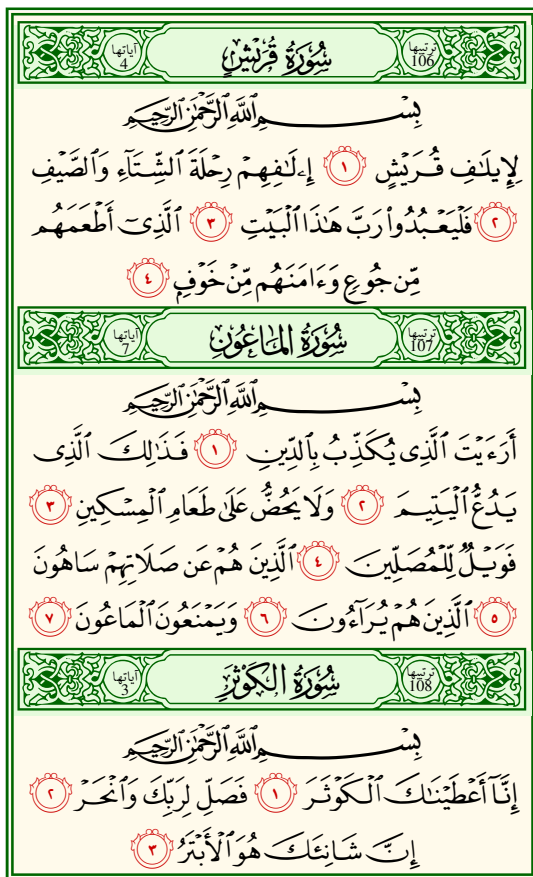 ترتيبها 106 سُورَةُ قُرَيْشٍ آياتها 4
بِسْمِ ٱللَّهِ ٱلرَّحْمَٰنِ ٱلرَّحِيمِ
لِإِيلَٰفِ قُرَيْشٍ ١ إِۦلَٰفِهِمْ رِحْلَةَ ٱلشِّتَآءِ وَٱلصَّيْفِ
٢ فَلْيَعْبُدُوا۟ رَبَّ هَٰذَا ٱلْبَيْتِ ٣ ٱلَّذِىٓ أَطْعَمَهُم
مِّن جُوعٍ وَءَامَنَهُم مِّنْ خَوْفٍۭ ٤
ترتيبها 107 سُورَةُ المَاعُونِ آياتها 7
بِسْمِ ٱللَّهِ ٱلرَّحْمَٰنِ ٱلرَّحِيمِ
أَرَءَيْتَ ٱلَّذِى يُكَذِّبُ بِٱلدِّينِ ١ فَذَٰلِكَ ٱلَّذِى
يَدُعُّ ٱلْيَتِيمَ ٢ وَلَا يَحُضُّ عَلَىٰ طَعَامِ ٱلْمِسْكِينِ ٣
فَوَيْلٌ لِّلْمُصَلِّينَ ٤ ٱلَّذِينَ هُمْ عَن صَلَاتِهِمْ سَاهُونَ
٥ ٱلَّذِينَ هُمْ يُرَآءُونَ ٦ وَيَمْنَعُونَ ٱلْمَاعُونَ ٧
ترتيبها 108 سُورَةُ الكَوْثَرِ آياتها 3
بِسْمِ ٱللَّهِ ٱلرَّحْمَٰنِ ٱلرَّحِيمِ
إِنَّآ أَعْطَيْنَٰكَ ٱلْكَوْثَرَ ١ فَصَلِّ لِرَبِّكَ وَٱنْحَرْ ٢
إِنَّ شَانِئَكَ هُوَ ٱلْأَبْتَرُ ٣